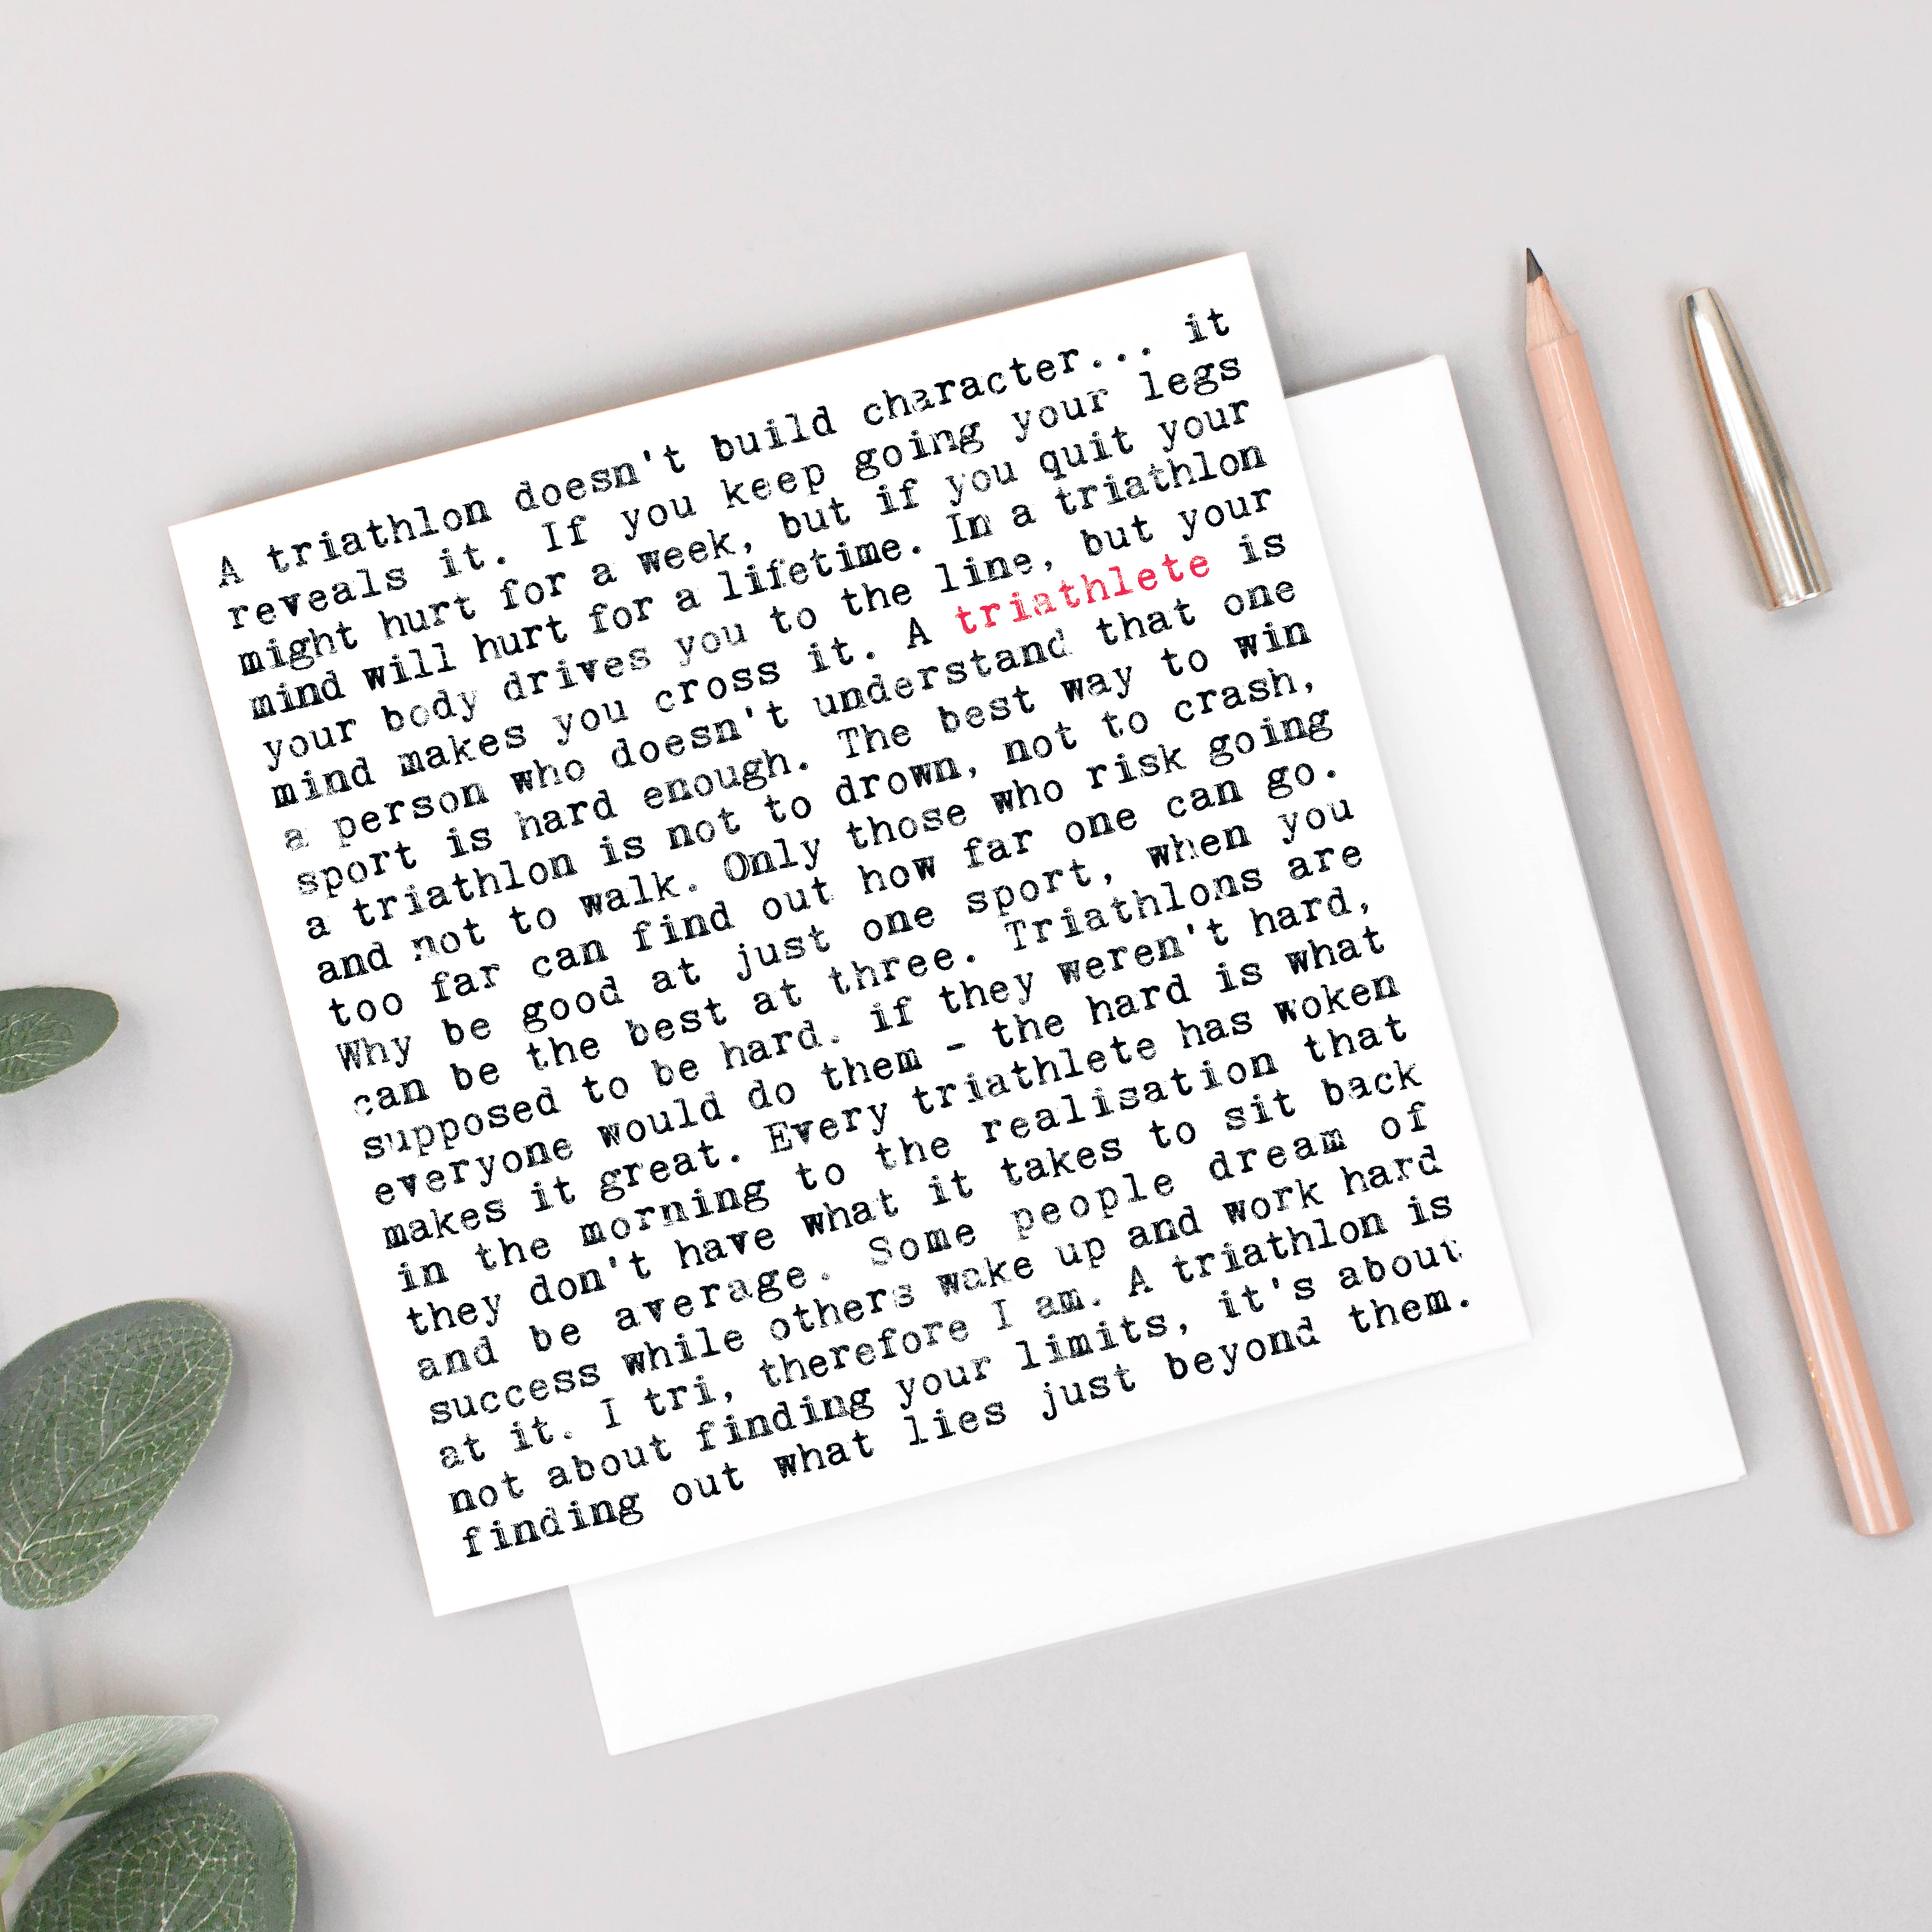 A triathlon doesn't build character... it
reveals it. If you keep going your legs
might hurt for a week, but if you quit your
mind will hurt for a lifetime. In a triathlon
your body drives you to the line, but your
mind makes you cross it. A triathlete is
a person who doesn't understand that one
sport is hard enough. The best way to win
a triathlon is not to drown, not to crash,
and not to walk. Only those who risk going
too far can find out how far one can go.
Why be good at just one sport, when you
can be the best at three. Triathlons are
supposed to be hard. if they weren't hard,
everyone would do them - the hard is what
makes it great. Every triathlete has woken
in the morning to the realisation that
they don't have what it takes to sit back
and be average. Some people dream of
success while others wake up and work hard
at it. I tri, therefore I am. A triathlon is
not about finding your limits, it's about
finding out what lies just beyond them.